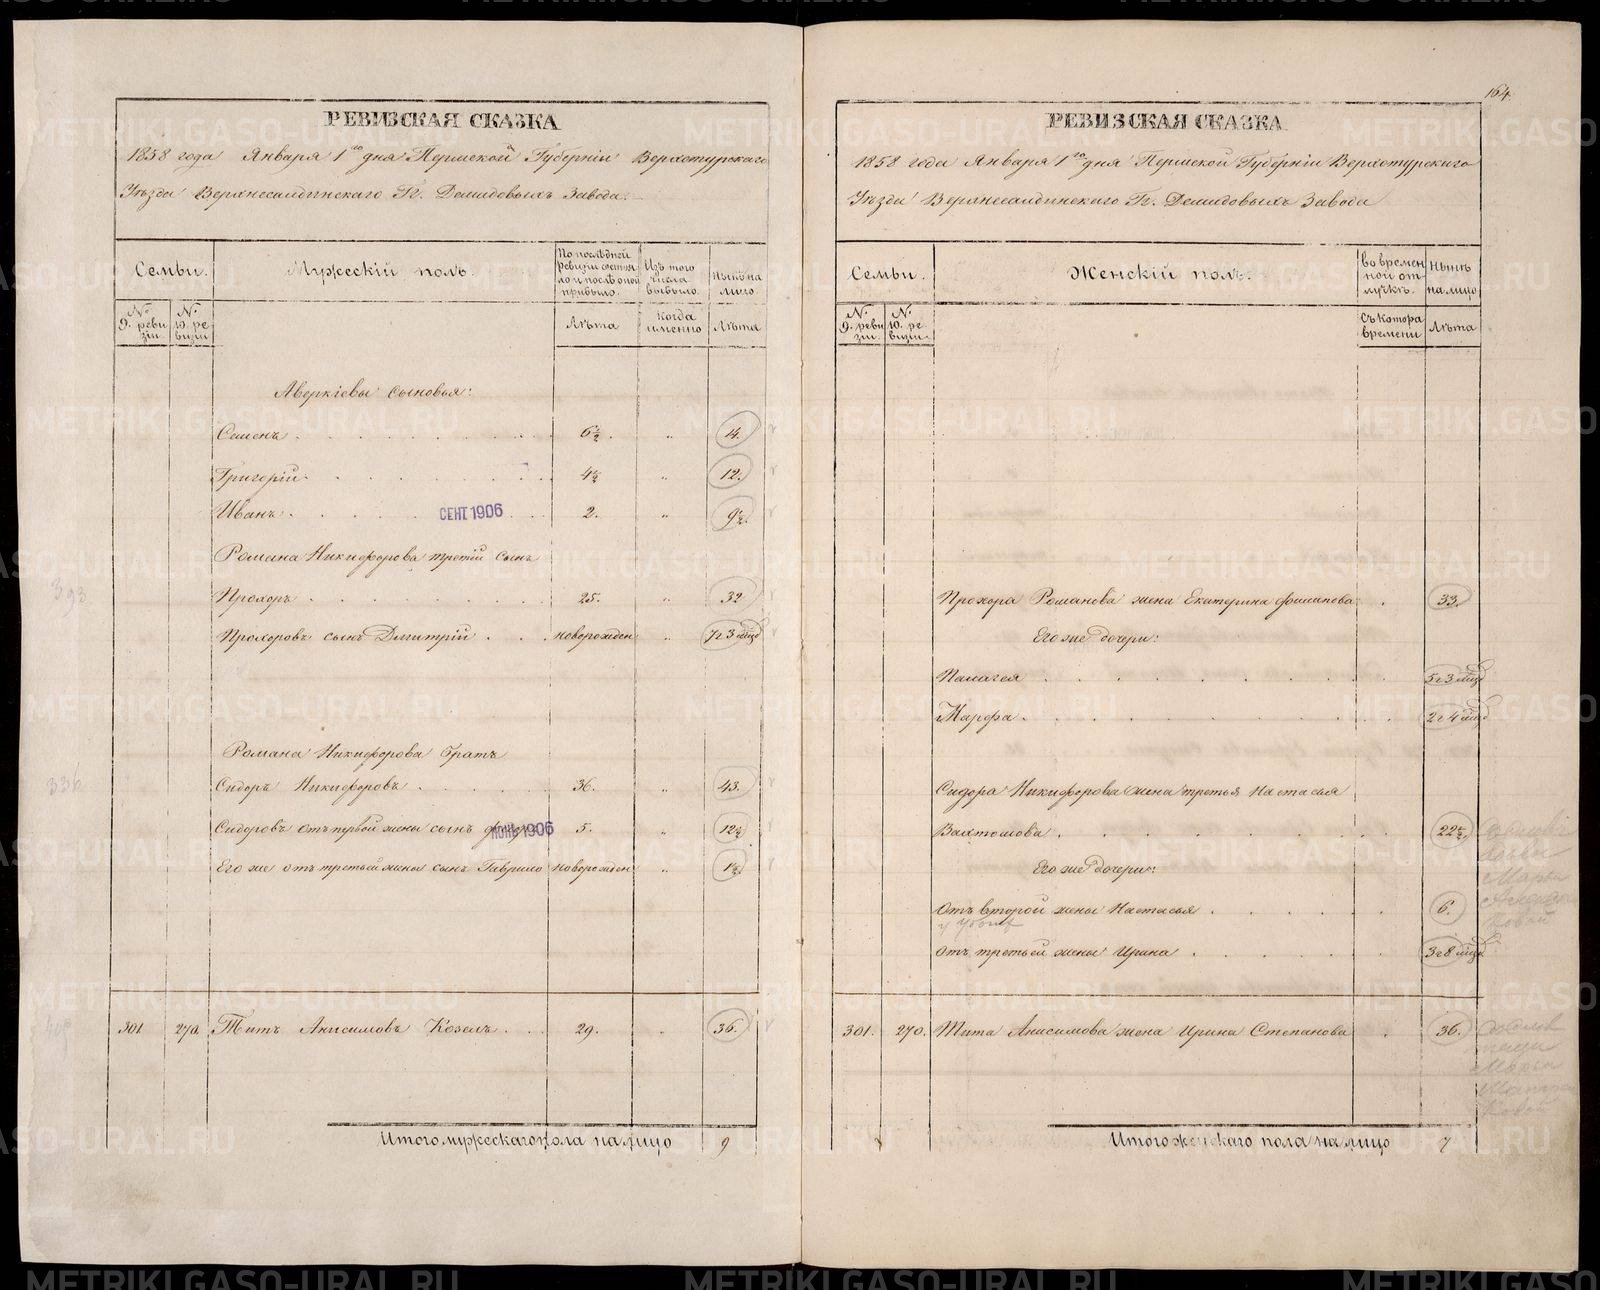 РЕВИЗСКАЯ СКАЗКА
1858 года Января 1го дня Пермской Губерніи Верхотурскаго
Уѣзда Верхнесалдинскаго Гг. Демидовыхъ Завода.
Семьи.
Мужескій полъ.
По послѣдней ревизіи состояло и послѣ оной прибыло.
Изъ того числа выбыло.
Нынѣ на лицо.
№ 9. ревизіи.
№ 10. ревизіи
Лѣта
когда именно
Лѣта
Аверкіевы сыновья:
Семенъ 6½. „ 14.
Григорій 4½ „ 12.
Иванъ СЕНТ 1906 2. „ 9½.
Романа Никифорова третій сынъ
Прохоръ 25. „ 32
Прохоровъ сынъ Дмитрій новорожден „ 7г 3 мѣс
Романа Никифорова братъ
Сидоръ Никифоровъ 36. „ 43.
Сидоровъ отъ первой жены сынъ 1906 5. „ 12½
Его же отъ третьей жены сынъ Гаврило новорожден „ 1½
301 270. Титъ Анисимовъ Козелъ 29. „ 36.
Итого мужескаго пола на лицо 9
164.
РЕВИЗСКАЯ СКАЗКА
1858 года Января 1го дня Пермской Губерніи Верхотурскаго
Уѣзда Верхнесалдинскаго Гг. Демидовыхъ Завода
Семьи.
Женскій полъ.
во временной отлучкѣ.
Нынѣ на лицо
№ 9. ревизіи.
№ 10. ревизіи.
Съ котора времени
Лѣта
Прохора Романова жена Екатерина 33.
Его же дочери:
Палагея 5г 3 мѣс
Марфа 2г 4 мѣс
Сидора Никифорова жена третья Настасья
Вахтомова 22½
Его же дочери:
Отъ второй жены Настасья 6.
отъ третьей жены Ирина 3г 8 мѣс
301. 270. Тита Анисимова жена Ирина Степанова 36.
Итого женскаго пола на лицо 7
METRIKI.GASO-URAL.RU